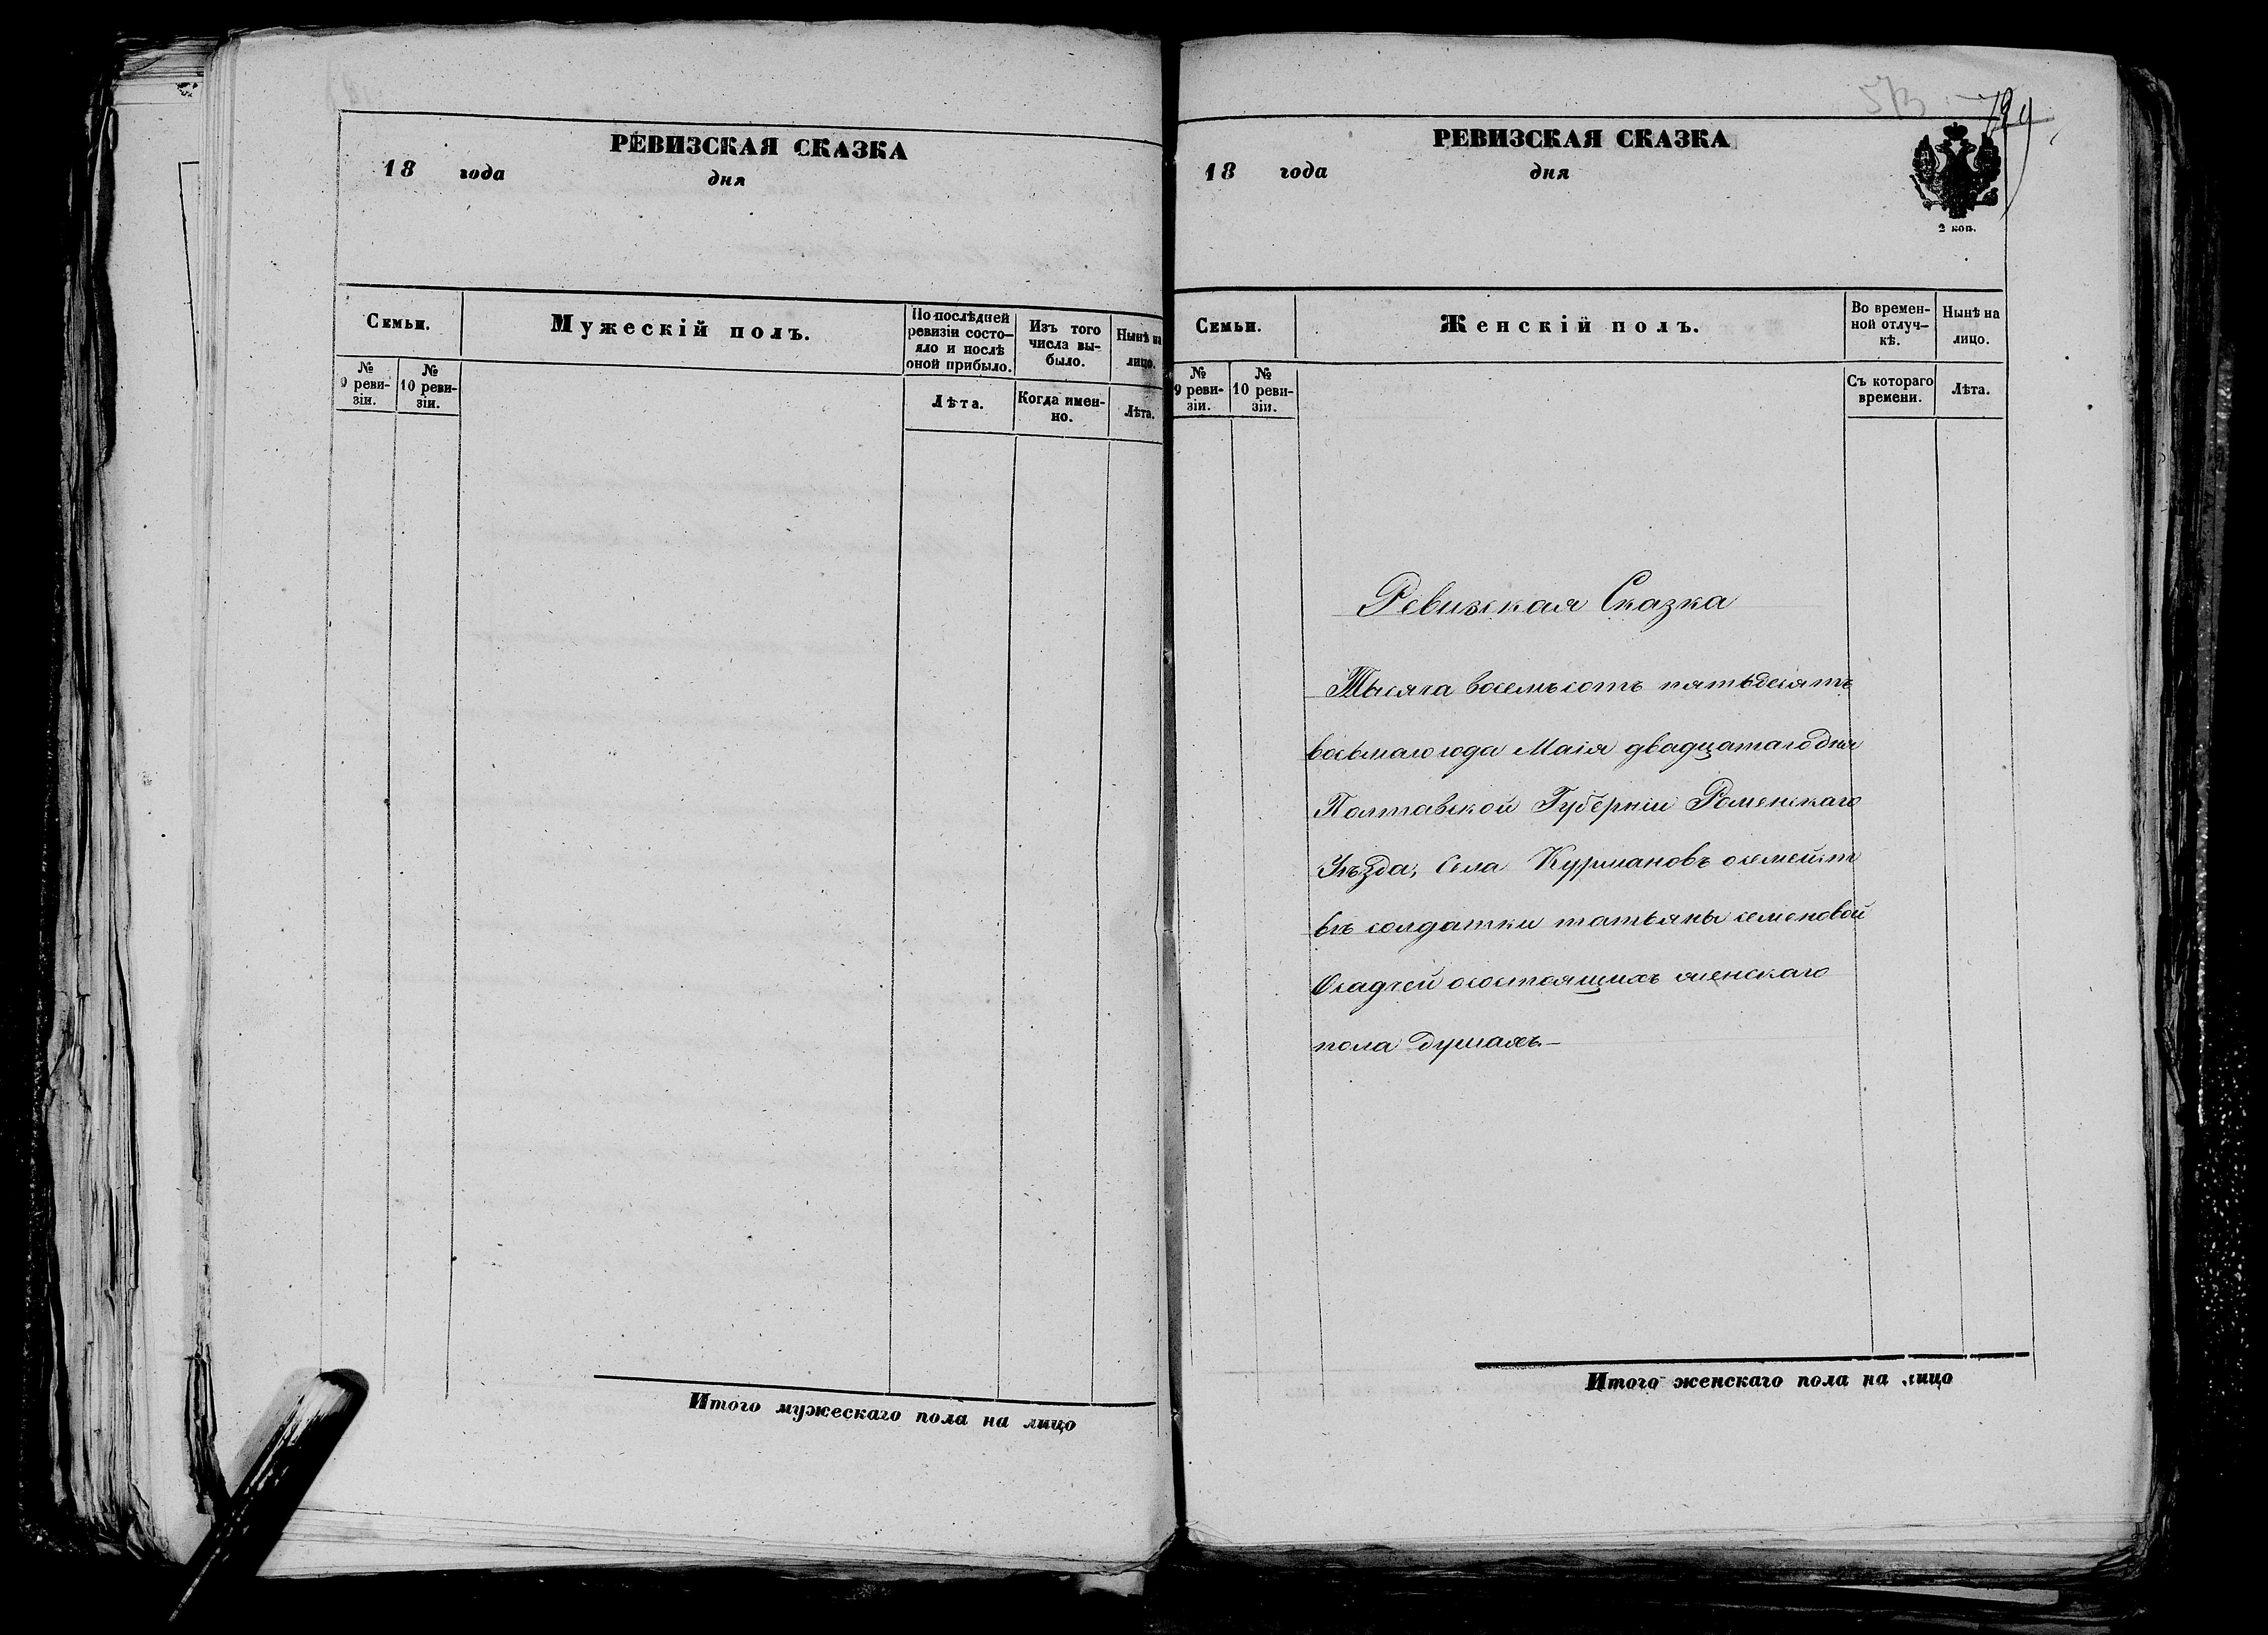 РЕВИЗСКАЯ СКАЗКА
18 года дня
Семьи.
Мужескій полъ.
По послѣдней
ревизіи состо-
яло и послѣ
оной прибыло.
Изъ того
числа вы-
было.
Нынѣ на
лицо.
№
9 реви-
зіи.
№
10 реви-
зіи.
Лѣта.
Когда имен-
но.
Лѣта.
Итого мужескаго пола на лицо
573
РЕВИЗСКАЯ СКАЗКА
18 года дня
2 коп.
Семьи.
Женскій полъ.
Во времен-
ной отлуч-
кѣ.
Нынѣ на
лицо.
№
9 реви-
зіи.
№
10 реви-
зіи.
Съ котораго
времени.
Лѣта.
Ревизская Сказка
Тысяча восемьсотъ пятьдесятъ
восьмаго года Маія двадцатаго дня
Полтавской Губерніи Роменскаго
Уѣзда, Села Курмановъ осемейст
вѣ солдатки татьяны семеновой
Осадчей осостоящихъ женскаго
пола душахъ.—
Итого женскаго пола на лицо